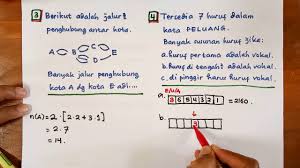 3 Berikut adalah jalur²
penghubung antar kota.
A B C D E
Banyak jalur penghubung
kota A dg kota E adl....
n(A) = 2 · [2·2 + 3·1]
= 2 . 7
= 14.
4 Tersedia 7 huruf dalam
kata PELUANG.
Banyak susunan huruf jika:
a. huruf pertama adalah vokal.
b. huruf di tengah² adalah vokal.
c. di pinggir harus huruf vokal.
E/U/A
a. 3 6 5 4 3 2 1 = 2160.
b. 3